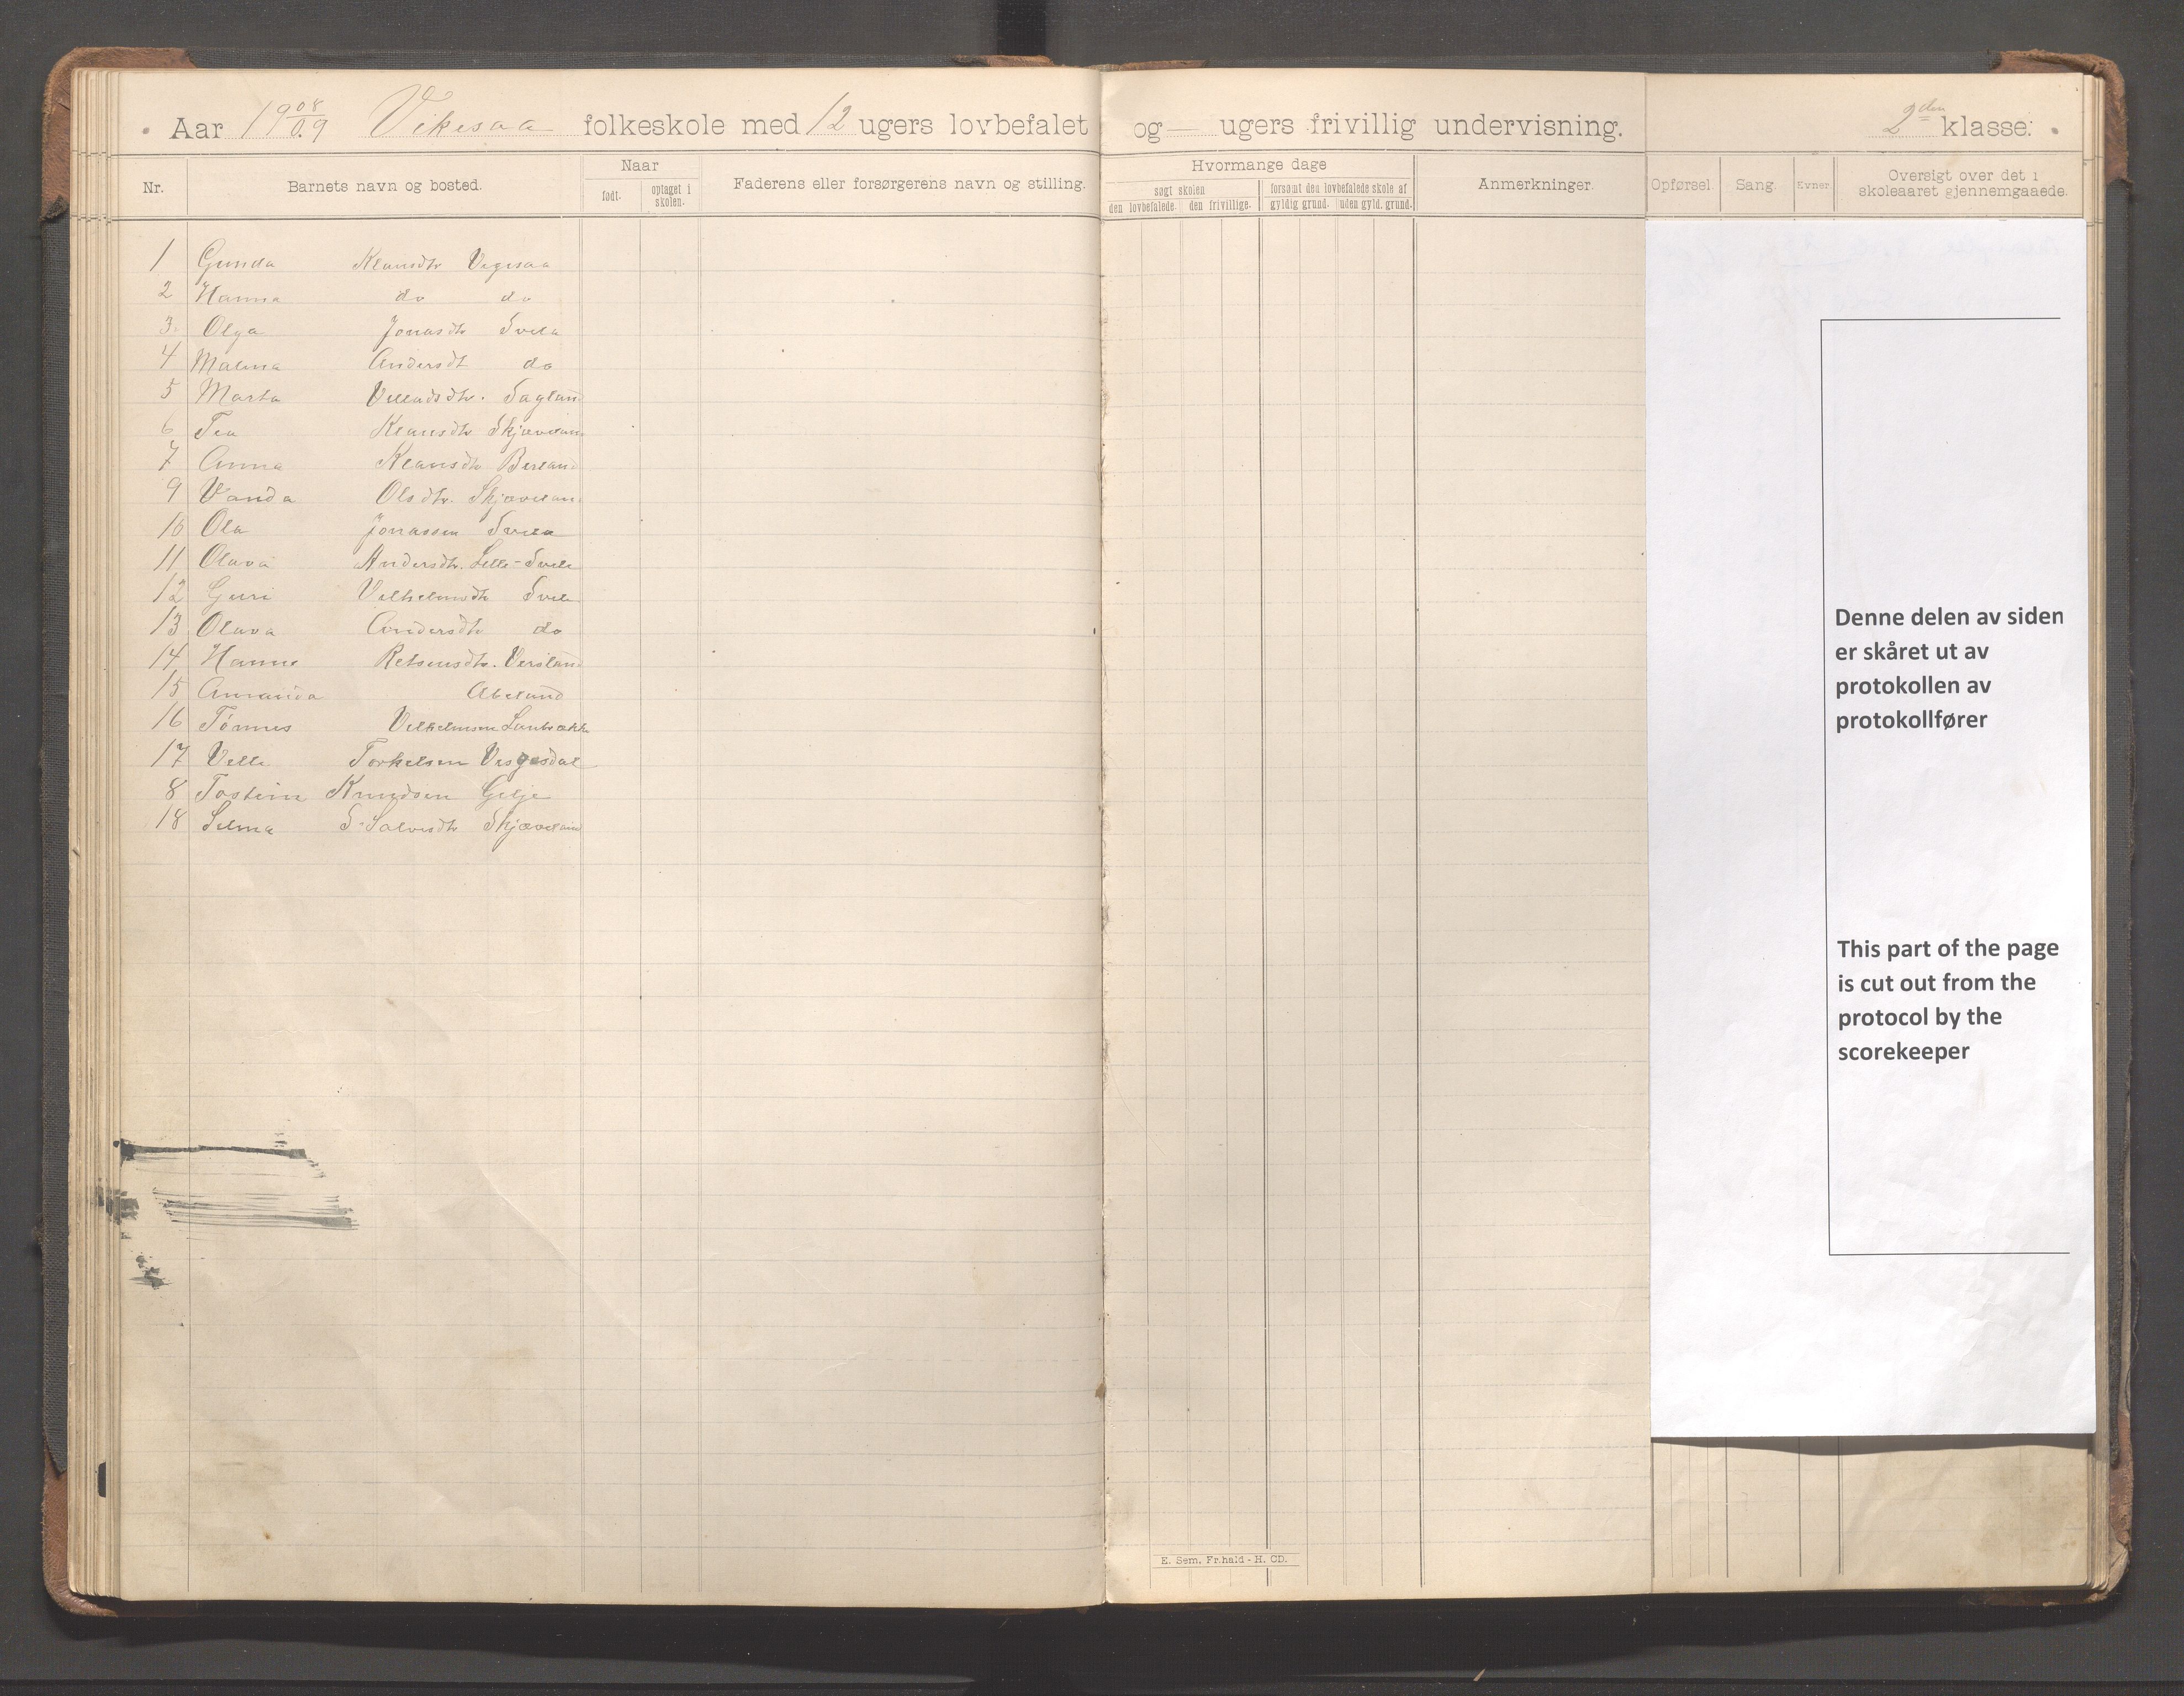 Aar 1908/09 Vikesaa folkeskole med 12 ugers lovbefalet og — ugers frivillig undervisning. 2den klasse.
Nr. Barnets navn og bosted. Naar født. optaget i skolen. Faderens eller forsørgerens navn og stilling. Hvormange dage søgt skolen den lovbefalede. den frivillige. forsømt den lovbefalede skole af gyldig grund. uden gyld. grund. Anmerkninger. Opførsel Sang. Evner. Oversigt over det i skoleaaret gjennemgaaede.
1 Gunda Klausdtr Vigesaa
2 Hanna do do
3 Olga Jonasdtr Svela
4 Malena Andersdt do
5 Marta Villadsdtr. Sagland
6 Tea Klausdtr Skjæveland
7 Anna Klausdtr Birland
9 Vanda Olsdtr. Skjæveland
10 Ola Jonassen Svela
11 Olava Andersdtr. Lille-Svela
12 Guri Vilhelmsdtr Svela
13 Olava Andersdtr do
14 Hanne Versland
15 Amanda Abeland
16 Tønnes Vilhelmsen
17 Ville Torkelsen
8 Tostein Knudsen Gilje
18 Selma S. Salvesdtr Skjæveland
Denne delen av siden
er skåret ut av
protokollen av
protokollfører
This part of the page
is cut out from the
protocol by the
scorekeeper
E. Sem, Fr.hald - H. CD.